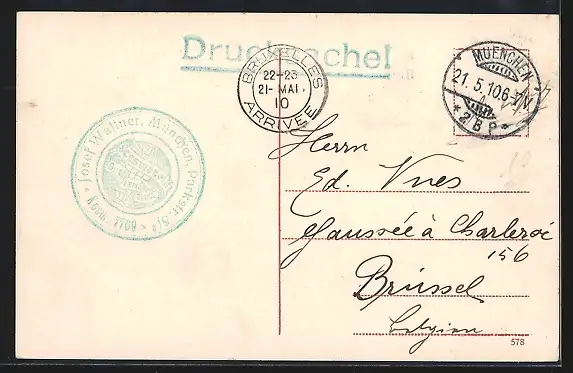 Drucksache!
BRUXELLES
22-23
21-MAI
10
ARRIVÉE
MUENCHEN
21.5.10.6-7N.
* 2 B P *
Josef Wallner, München, Parkstr.
Herrn
Ed. Vnes
Chaussée à Charleroi
156
Brüssel
Belgien
578